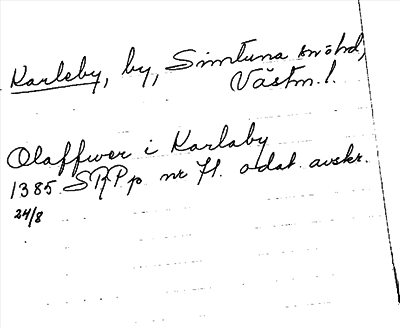 Karleby, by, Simtuna snöhd,
Västm. l.
Olaffwer i Karlaby
1385 SRPp nr 71. odat. avskr.
24/8